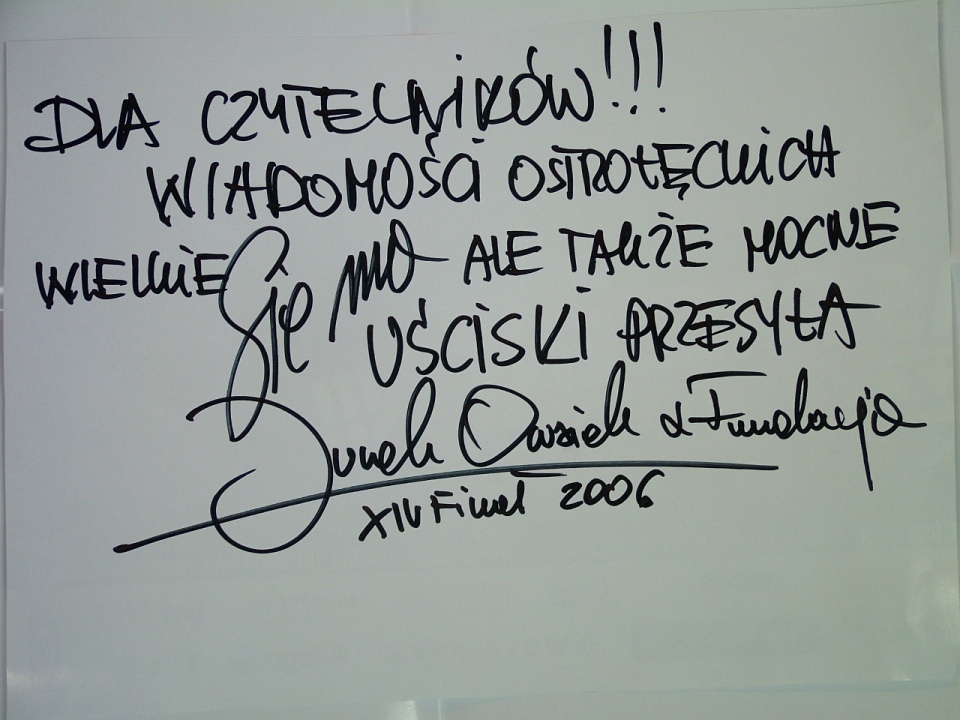 DLA CZYTELNIKÓW!!!
WIADOMOŚCI OSTROŁĘCKICH
WIELKIE Się ma ALE TAKŻE MOCNE
UŚCISKI PRZESYŁA
Jurek Owsiak z Fundacją
XIV Finał 2006